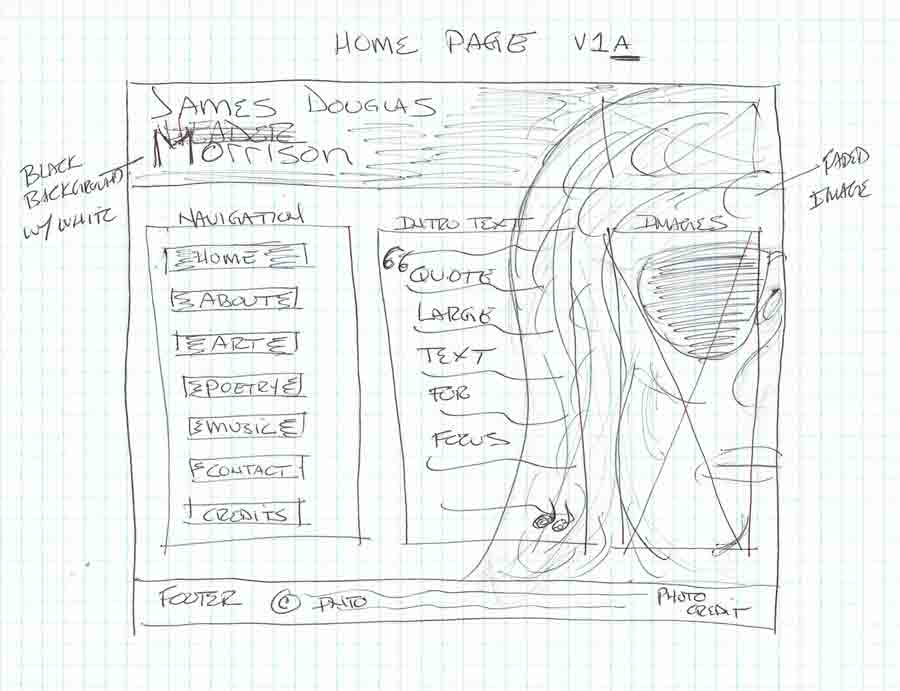 HOME PAGE V1A
JAMES DOUGLAS
HEADER
Morrison
BLACK
BACKGROUND
W/ WHITE
FADED
IMAGE
NAVIGATION
HOME
ABOUT
ART
POETRY
MUSIC
CONTACT
CREDITS
INTRO TEXT
QUOTE
LARGE
TEXT
FOR
FOCUS
IMAGES
FOOTER ©
PHOTO
CREDIT